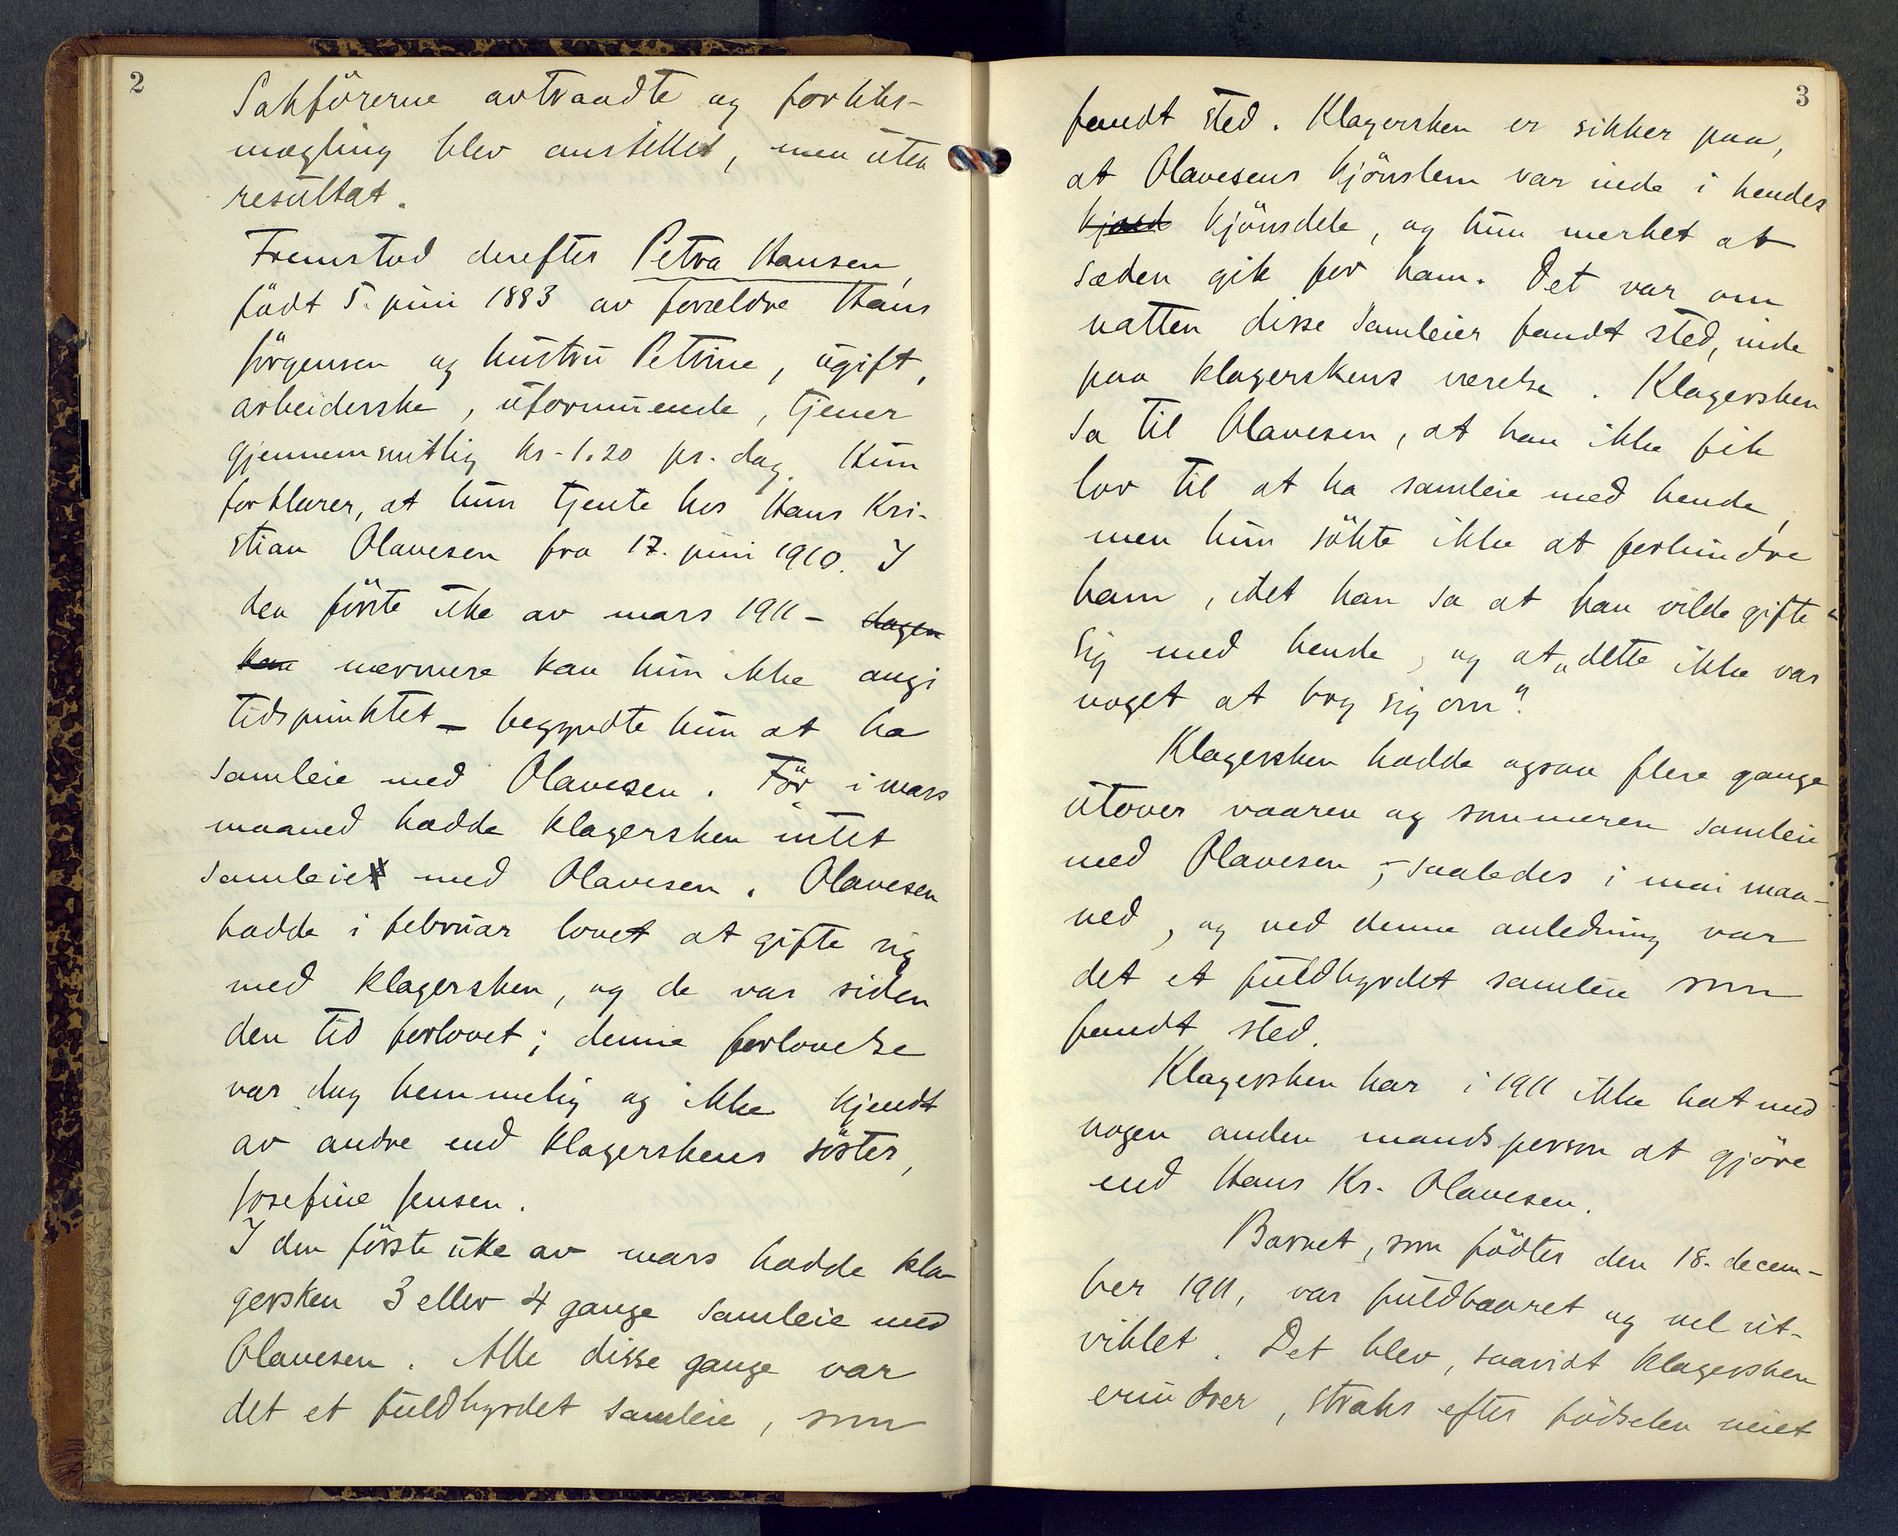 2
Sakförerne avtraadte og forliks-
mægling blev anstillet, men uten
resultat.
Fremstod derefter Petra Hansen,
född 5. juni 1883 av forældre Hans
Jörgensen og hustru Petrine, ugift,
arbeiderske, uformuende, tjener
gjennemsnitlig kr. 1.20 pr. dag. Hun
forklarer, at hun tjente hos Hans Kri-
stian Olavesen fra 17. juni 1910. I
den förste uke av mars 1911 – dagen
kan nærmere kan hun ikke angi
tidspunktet – begyndte hun at ha
samleie med Olavesen. För i mars
maaned hadde klagersken intet
samleie med Olavesen. Olavesen
hadde i februar lovet at gifte sig
med klagersken, og de var siden
den tid forlovet; denne forlovelse
var dog hemmelig og ikke kjendt
av andre end klagerskens söster,
Josefine Jensen.
I den förste uke av mars hadde kla-
gersken 3 eller 4 gange samleie med
Olavesen. Alle disse gange var
det et fuldbyrdet samleie, som
3
fandt sted. Klagersken er sikker paa,
at Olavesens kjönslem var inde i hendes
kjönsdele, og hun merket at
sæden gik for ham. Det var om
natten disse samleier fandt sted, inde
paa klagerskens værelse. Klagersken
sa til Olavesen, at han ikke fik
lov til at ha samleie med hende,
men hun sökte ikke at forhindre
ham, idet han sa at han vilde gifte
sig med hende, og at „dette ikke var
noget at bry sig om".
Klagersken hadde ogsaa flere gange
utover vaaren og sommeren samleie
med Olavesen, – saaledes i mai maa-
ned, og ved denne anledning var
det et fuldbyrdet samleie som
fandt sted.
Klagersken har i 1911 ikke hat med
nogen anden mandsperson at gjöre
end Hans Kr. Olavesen.
Barnet, som födtes den 18. decem-
ber 1911, var fuldbaaret og vel ut-
viklet. Det blev, saavidt klagersken
erindrer, straks efter födselen veiet